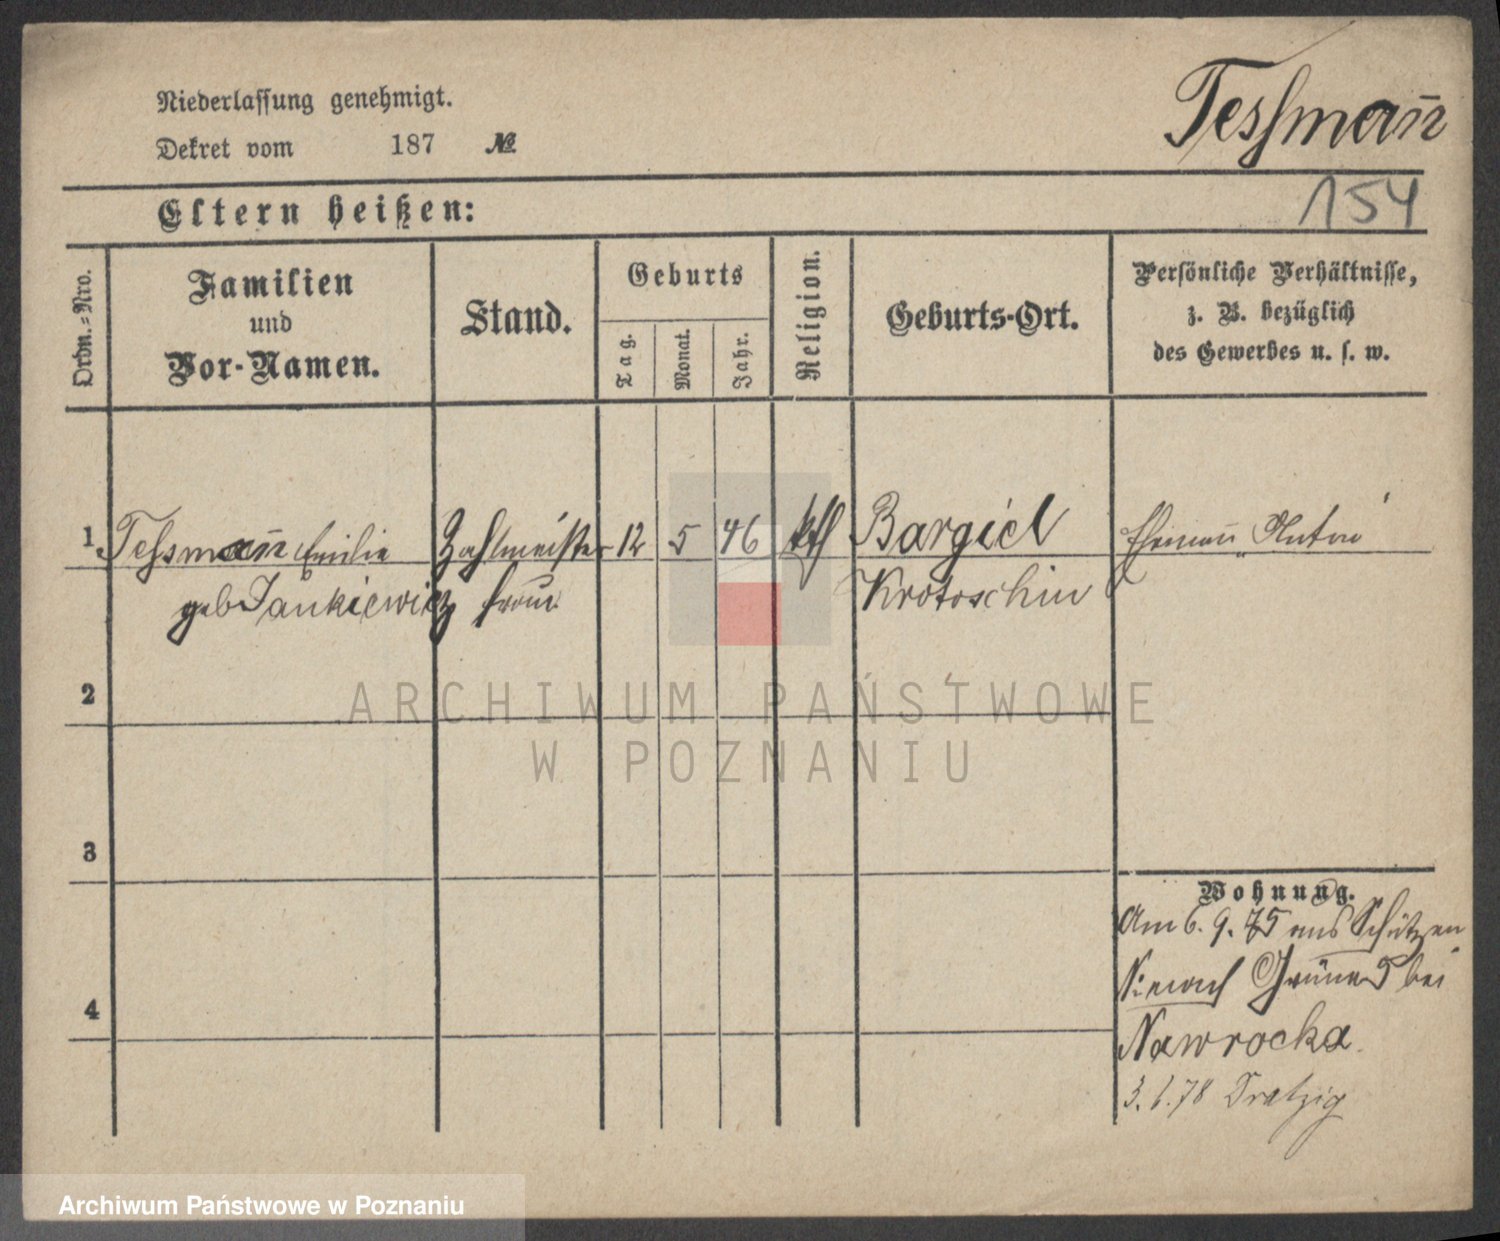 Niederlassung genehmigt.
Tessmann̅
Dekret vom 187 №
Eltern heißen:
154
Ordn.-Nro.
Familien
und
Vor-Namen.
Stand.
Geburts
Tag.
Monat.
Jahr.
Religion.
Geburts-Ort.
Persönliche Verhältnisse,
z. B. bezüglich
des Gewerbes u. s. w.
1 Tessman̅n Emilie Zahlmeister 12 5 46 kth Bargiel Ehemann Anton
geb Jankiewicz frau Krotoschin
2
ARCHIWUM PAŃSTWOWE
W POZNANIU
3
Wohnung.
Am 6. 9. 75 aus Schützen
nach bei
4
Nawrocka
78 Dratzig
Archiwum Państwowe w Poznaniu